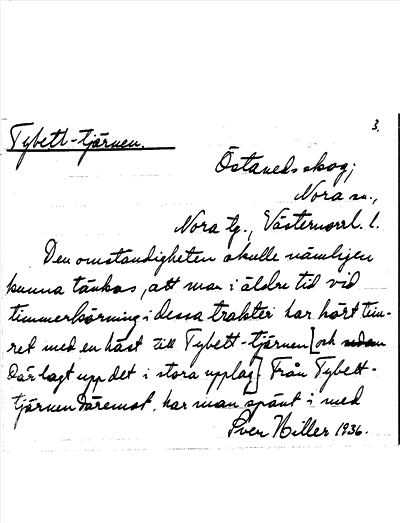 3.
Tybett-tjärnen.
Östanedsskog;
Nora sn.,
Nora tg., Västernorrl. l.
Den omständigheten skulle nämligen
kunna tänkas, att man i äldre tid vid
timmerkörning i dessa trakter har kört tim-
ret med en häst till Tybett-tjärnen [och sedan
där lagt upp det i stora upplag] Från Tybett-
tjärnen däremot, har man spänt i med
Sven Hiller 1936.